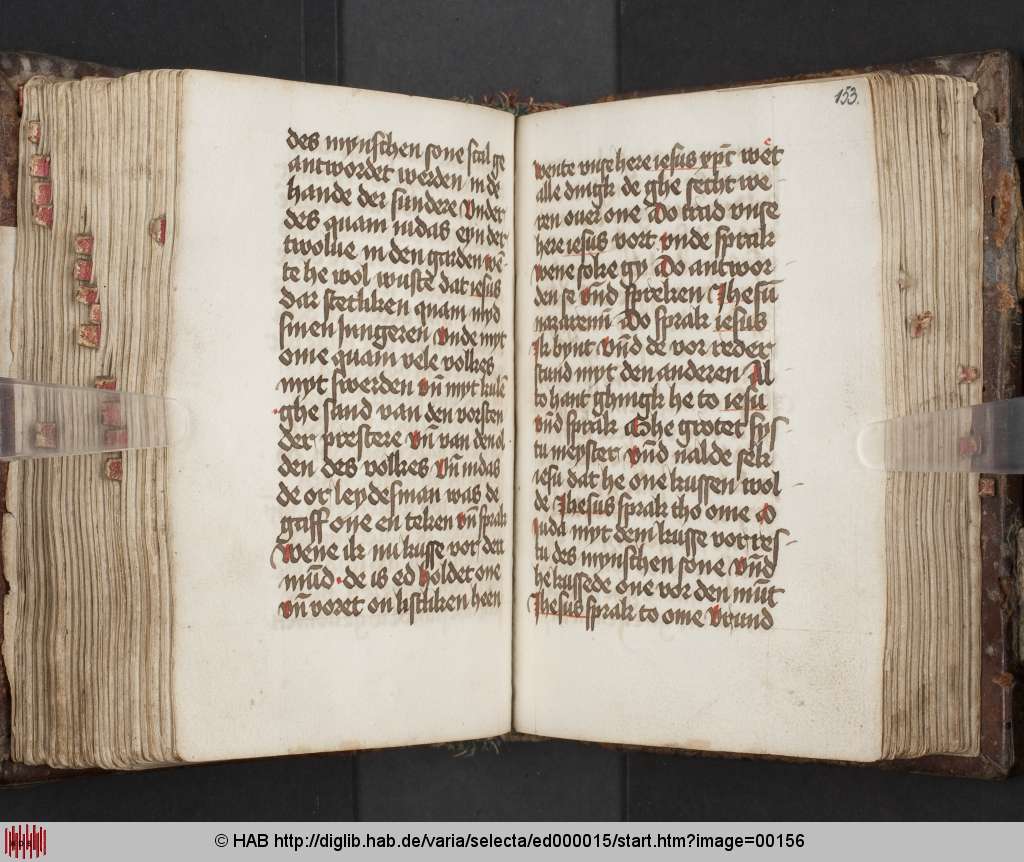 des mynschen sone scal ge
antwordet werden in de
hande der sundere Vnder
des quam iudas eyn der
twolue in den garden wē
te he wol wuste dat iesus
dar stetliken quam myd
sinen Jungeren Vnde myt
ome quam vele volkes
myt swerden vn̄ myt kulē
ghe sand van den vorsten
der prestere vn̄ van den ol
den des volkes Vn̄ iudas
de or leydesman was de
gaff one en teken vn̄ sprak
Wene ik nu kusse vor den
mūd de is ed holdet one
vn̄ voret on listliken heen
153.
wente vnse here iesus xp̄c wet
alle dingk de ghe secht we
ren ouer one Do trad vnse
here iesus vort vnde sprak
wene soke gy Do antwor
den se vn̄d spreken Jhesū
nazarenū Do sprak iesus
Ik bynt Vn̄d de vor reder
stund myt den anderen Al
to hant ghingk he to iesu
vn̄d sprak Ghe grotet sys
tu meyster vn̄d nalde sek
iesu dat he one kussen wol
de Jhesus sprak tho ome O
iuda myt dem kusse vorres
tu des mynschen sone vn̄d
he kussede one vor den mūt
Jhesus sprak to ome Vrund
© HAB http://diglib.hab.de/varia/selecta/ed000015/start.htm?image=00156